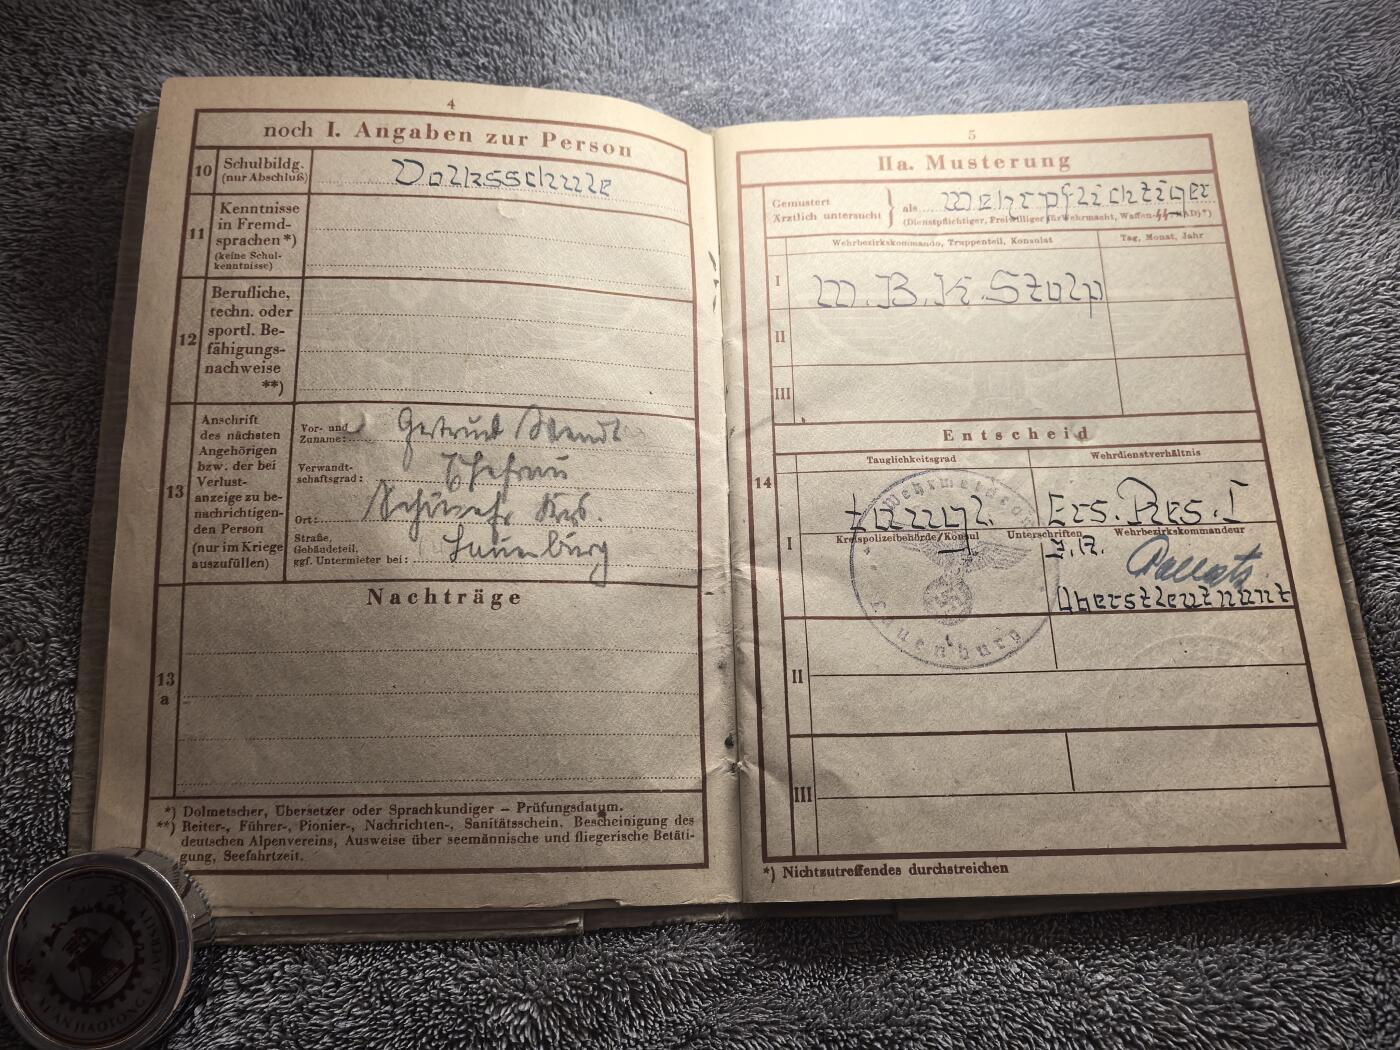 4
noch I. Angaben zur Person
10
Schulbildg.
(nur Abschluß)
Volksschule
11
Kenntnisse
in Fremd-
sprachen *)
(keine Schul-
kenntnisse)
12
Berufliche,
techn. oder
sportl. Be-
fähigungs-
nachweise
**)
13
Anschrift
des nächsten
Angehörigen
bzw. der bei
Verlust-
anzeige zu be-
nachrichtigen-
den Person
(nur im Kriege
auszufüllen)
Vor- und
Zuname:
Gertrud Wendt
Verwandt-
schaftsgrad:
Ehefrau
Ort:
Krs.
Straße,
Gebäudeteil,
ggf. Untermieter bei:
Lauenburg
Nachträge
13
a
*) Dolmetscher, Übersetzer oder Sprachkundiger – Prüfungsdatum.
**) Reiter-, Führer-, Pionier-, Nachrichten-, Sanitätsschein, Bescheinigung des
deutschen Alpenvereins, Ausweise über seemännische und fliegerische Betäti-
gung, Seefahrtzeit.
5
IIa. Musterung
Gemustert
Ärztlich untersucht
als
Wehrpflichtiger
(Dienstpflichtiger, Freiwilliger für Wehrmacht, Waffen-SS, RAD) *)
Wehrbezirkskommando, Truppenteil, Konsulat
Tag, Monat, Jahr
I
W.B.K. Stolp
II
III
Entscheid
14
Tauglichkeitsgrad
Wehrdienstverhältnis
I
Ers. Res. I
Kreispolizeibehörde/Konsul
Unterschriften
Wehrbezirkskommandeur
Oberstleutnant
Lauenburg
II
III
*) Nichtzutreffendes durchstreichen
XI'AN JIAOTONG